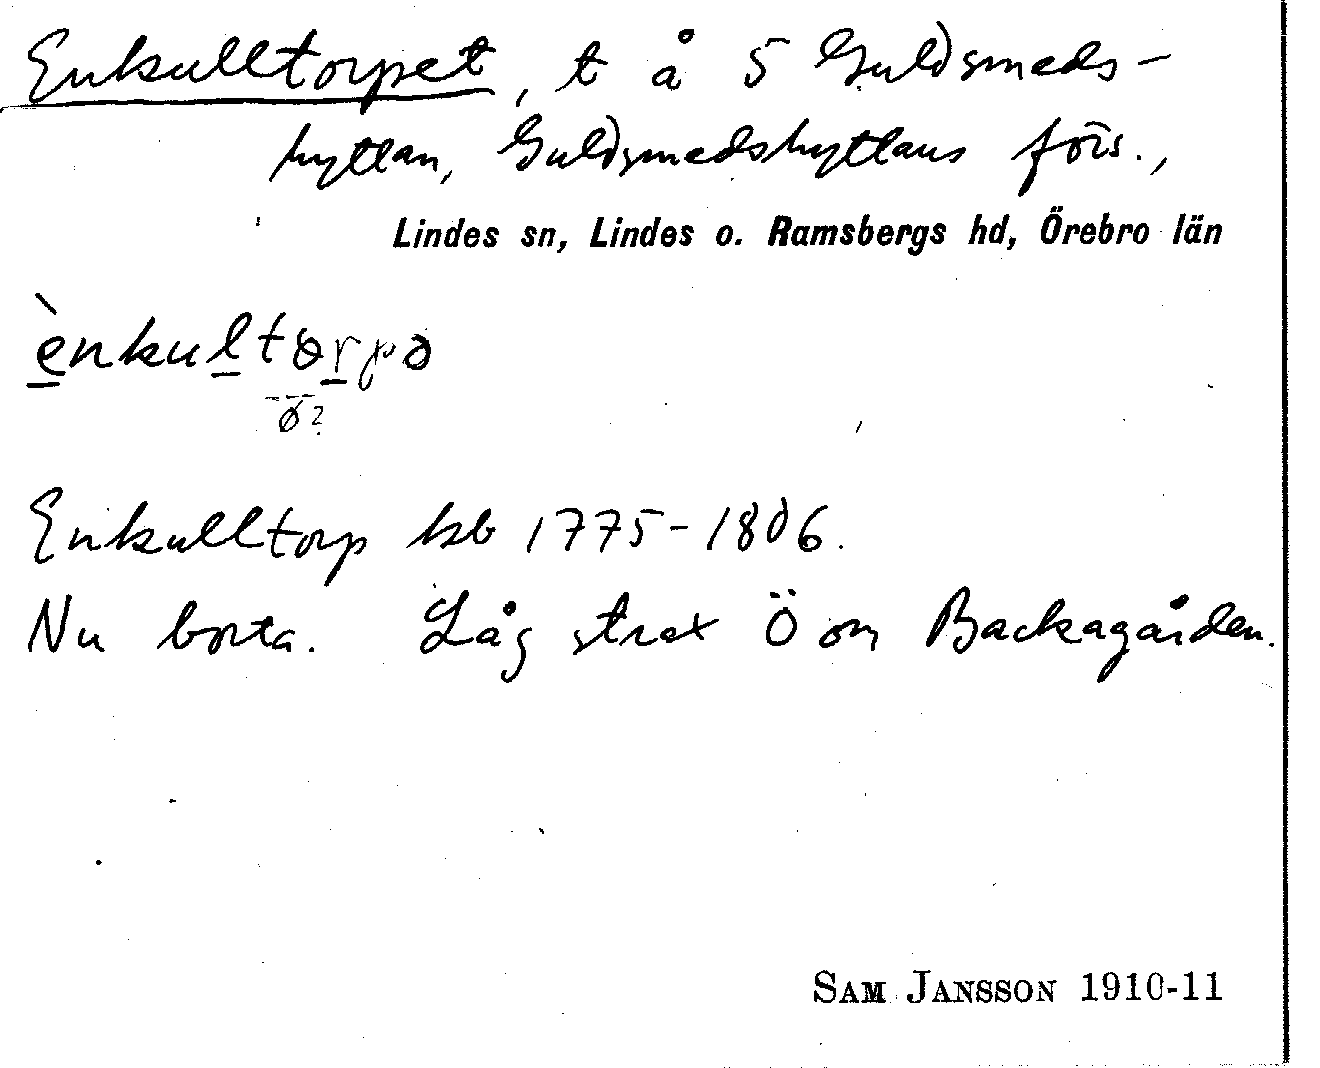 Enkulltorpet, t å 5 Guldsmeds-
hyttan, Guldsmedshyttans förs.,
Lindes sn, Lindes o. Ramsbergs hd, Örebro län
ènkultɵrpə
ø?
Enkulltorp kb 1775-1806.
Nu borta. Låg strax Ö om Backagården.
SAM JANSSON 1910-11